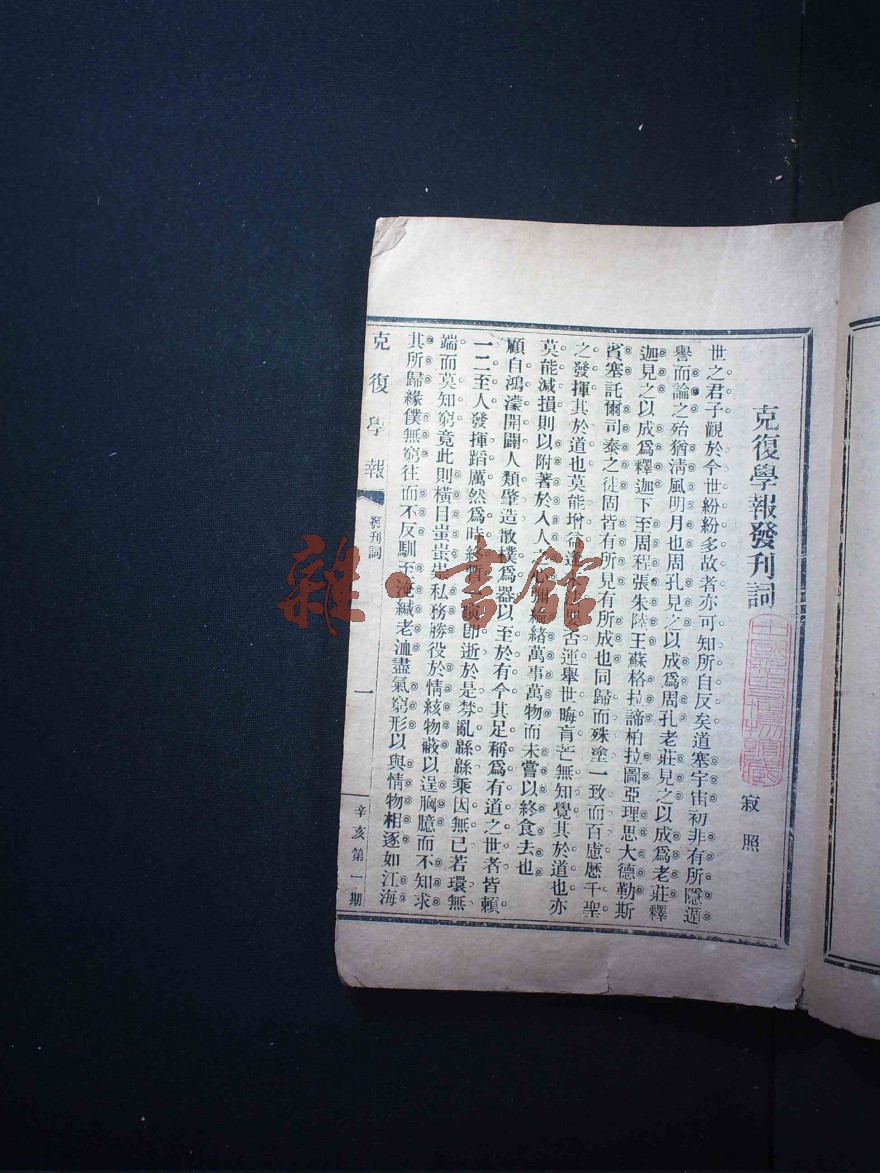 克復學報發刊詞
寂照
世之君子觀於今世紛紛多故者亦可知所自反矣道塞宇宙初非有所隱遁
譽而論之殆猶清風明月也周孔見之以成爲周孔老莊見之以成爲老莊釋
迦見之以成爲釋迦下至周程張朱陸王蘇格拉諦柏拉圖亞理思大德勒斯
賓塞託爾司泰之徒固皆有所見有所成也同歸而殊塗一致而百慮歷千聖
之發揮其於道也莫能增 否運舉世晦盲芒無知覺其於道也亦
莫能減損則以附著於人人之心 綸緒萬事萬物而未嘗以終食去也
顧自鴻濛開闢人類肇造散樸爲器以至於有今其足稱爲有道之世者皆賴
一二至人發揮蹈厲然爲時終暫 卽逝於是棼亂繇繇乘因無已若環無
端而莫知窮竟此則橫目蚩蚩 私務勝役於情絯物蔽以逞胸臆而不知求
其所歸緣僕無窮往而不反馴至淹緘老洫盡氣窮形以與情物相逐如江海
克復學報
發刊詞
一
辛亥第一期
雜·書館